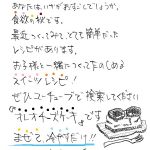 あなたは、いかがおすごしでしょうか。
食欲の秋です。
最近つくってみて、とても簡単だった
レシピがあります。
お子様と一緒につくってたのしめる
スイーツレシピ!
ぜひユーチューブで検索してください
"オレオチーズケーキ"
です
まぜて、冷やすだけ!!